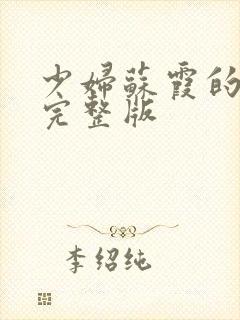 少婦蘇霞的
完整版
李绍纯